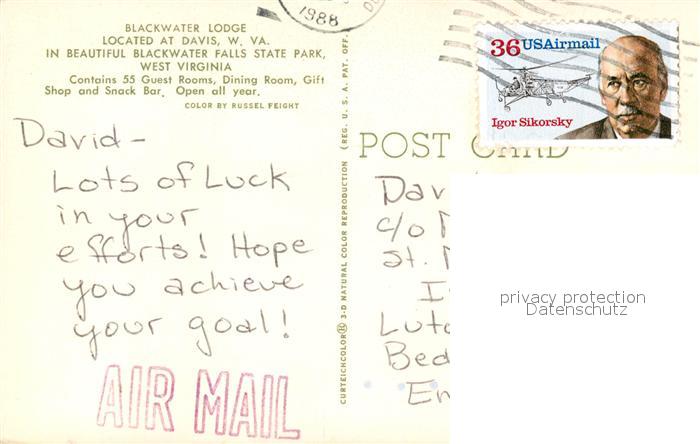 BLACKWATER LODGE
LOCATED AT DAVIS, W. VA.
IN BEAUTIFUL BLACKWATER FALLS STATE PARK,
WEST VIRGINIA
Contains 55 Guest Rooms, Dining Room, Gift
Shop and Snack Bar. Open all year.
COLOR BY RUSSEL FEIGHT
David-
Lots of Luck
in your
efforts! Hope
you achieve
your goal!
AIR MAIL
CURTEICHCOLOR® 3-D NATURAL COLOR REPRODUCTION (REG. U. S. A. PAT. OFF.
1988
36 USAirmail
Igor Sikorsky
POST CARD
Dav
c/o
St.
I
Luto
Bed
En
privacy protection
Datenschutz